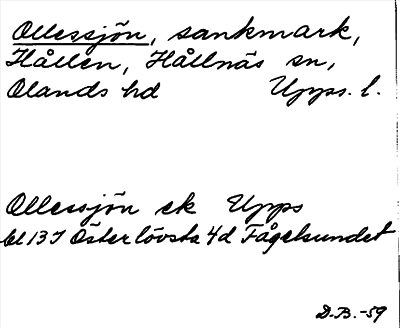 Ollessjön, sankmark,
Hållen, Hållnäs sn,
Olands hd Upps. l.
Ollessjön ek Upps
bl 13 I Österlövsta 4d Fågelsundet
D.B.-59